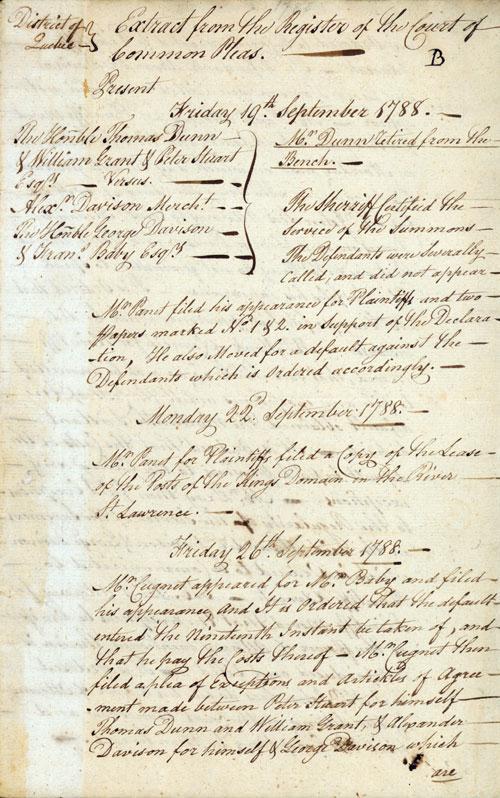 District of
Quebec
Extract from the Register of the Court of
Common Pleas.
B
Present
Friday 19th September 1788.
The Honble Thomas Dunn
& William Grant & Peter Stuart
Esqrs Versus
Alexr Davison Mercht
The Honble George Davison
& Frans Baby Esqrs
Mr Dunn retired from the
Bench.
The Sherriff Certified the
Service of the Summons
The Defendants were Severally
Called, and did not appear
Mr Panet filed his appearance for Plaintiffs and two
Papers marked No 1 & 2. in Support of the Declara-
tion, He also Moved for a default against the
Defendants which is Ordered accordingly.
Monday 22d September 1788.
Mr Panet for Plaintiffs filed a Copy of the Lease
of the Posts of the Kings Domain in the River
St Lawrence.
Friday 26th September 1788.
Mr Cugnet appeared for Mr Baby and filed
his appearance, and It is Ordered that the default
entered the Nineteenth Instant be taken of, and
that he pay the Costs thereof – Mr Cugnet then
filed a plea of Exceptions and Articles of Agree-
ment made between Peter Stuart for himself
Thomas Dunn and William Grant, & Alexander
Davison for himself & George Davison which
are